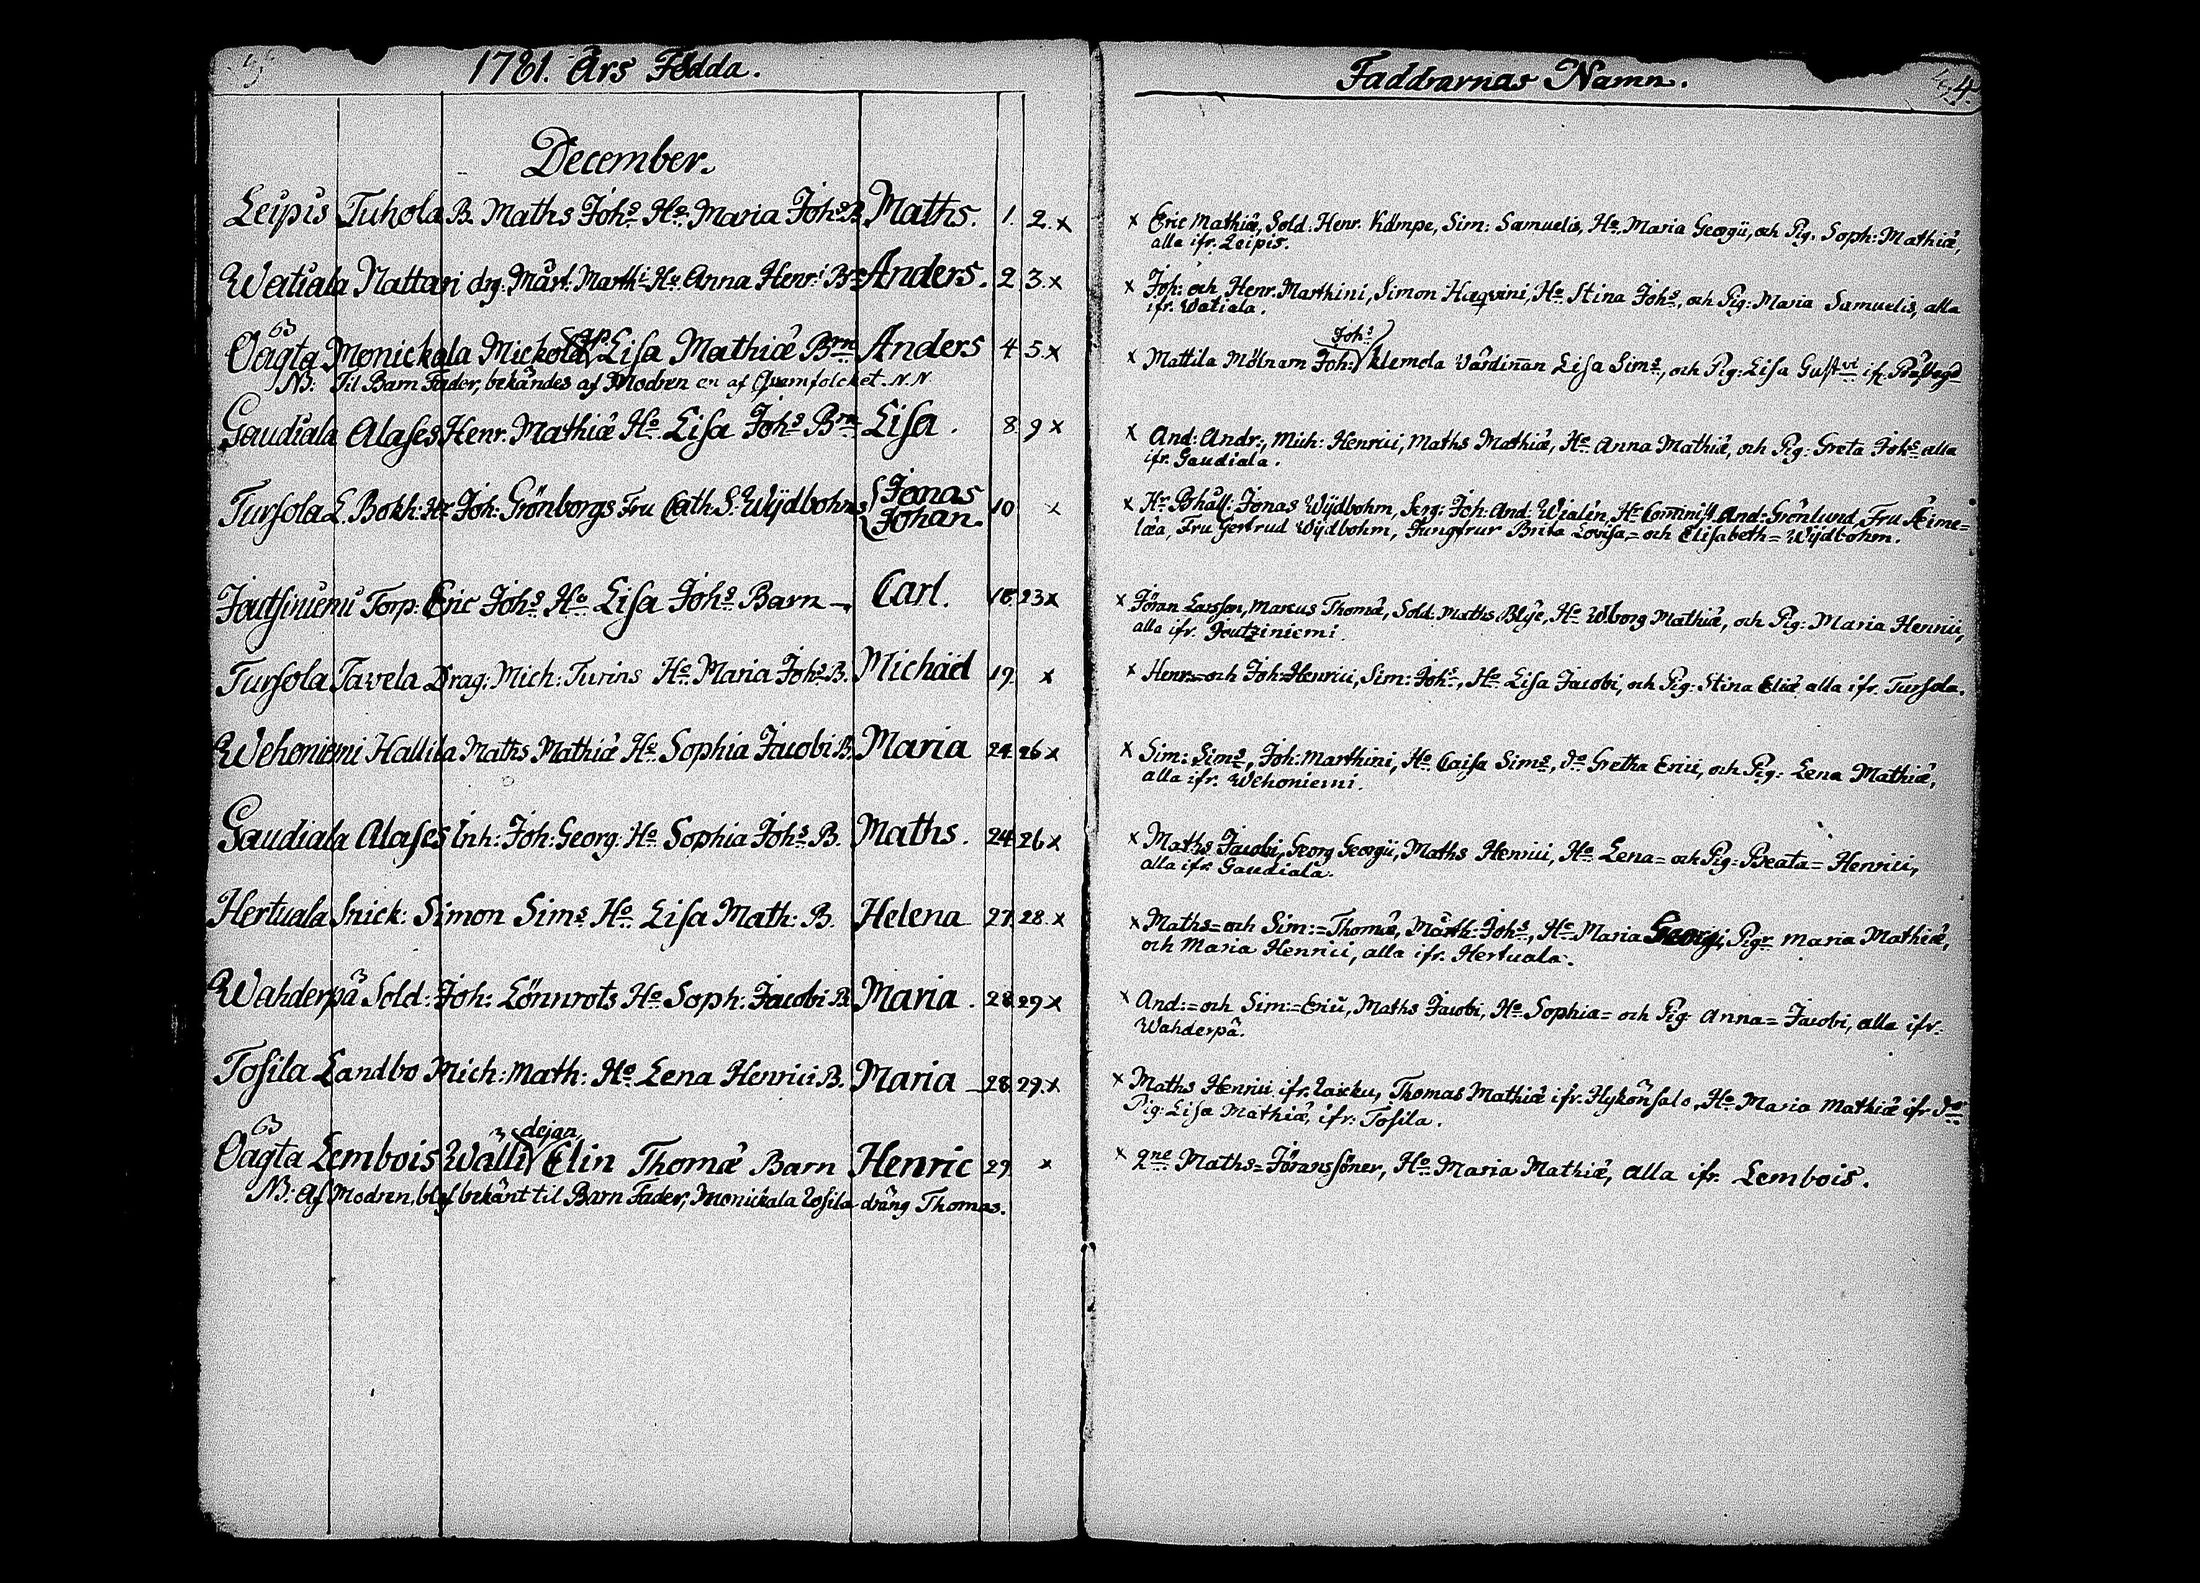 1781. Års Födda.
December.
Leipis Tuhola B. Maths Joh:s H:o Maria Joh:s B. Maths. 1. 2. x
Watiala Nattari drg: Mårt: Marthi H:o Anna Henr: Brn Anders. 2. 3. x
Oägta Monickala Lisa Mathiæ Brn Anders 4 5. x
NB: Til Barn Fader, bekändes af Modren en af Qvarnfolcket. N.N.
Gaudiala Alases Henr. Mathiæ H:o Lisa Joh:s Brn Lisa. 8 9 x
Tursola L. Bokh: Joh: Grönborgs Fru Cath. S. Wijdbohms { Jonas 10 x
Johan.
Joutsiniemi Torp: Eric Joh:s H:o Lisa Joh:s Barn Carl. 18. 23 x
Tursola Tavela Drag: Mich: Turins H:o Maria Joh:s B. Michäel 19. x
Wehoniemi Hallila Maths Mathiæ H:o Sophia Jacobi B. Maria 24. 26 x
Gaudiala Alases Inh: Joh: Georg: H:o Sophia Joh:s B. Maths. 24. 26 x
Hertuala Snick: Simon Sim:s H:o Lisa Math: B. Helena 27. 28. x
Wahderpä Sold: Joh: Lönnrots H:o Soph: Jacobi B Maria. 28. 29 x
Tosila Landbo Mich: Math: H:o Lena Henrici B. Maria 28. 29. x
dejan
Oägta Lembois Wälli Elin Thomæ Barn Henric 29. x
NB: Af Modren, blef bekänt til Barn Fader, Monickala dräng Thomas.
Faddrarnas Namn.
4.
x Eric Mathiæ, Sold: Henr. Kämpe, Sim: Samuelis, H:o Maria Georgii, och Pig. Soph: Mathiæ,
alla ifr. Leipis.
x Joh: och Henr. Marthini, Simon Haqvini, H:o Stina Joh:s, och Pig: Maria Samuelis, alla
ifr. Watiala.
Joh:s
x Mattila Mölnarn Joh: Klemola Värdinnan Lisa Sim:s, och Pig: Lisa Gust:vi ifr. Prästegd
x And: Andr:, Mich: Henrici, Maths Mathiæ, H:o Anna Mathiæ, och Pig: Greta Joh:s alla
ifr. Gaudiala.
x H:r Bhåll: Jonas Wijdbohm, Serg: Joh: And: Wialén, H:r And: Grönlund, Fru Æime=
læa, Fru Gertrud Wijdbohm, Jungfrur Brita Lovisa,= och Elisabeth= Wijdbohm.
x Jöran Larsson, Marcus Thomæ, Sold: Maths Blye, H:o Wborg Mathiæ, och Pig: Maria Henrici,
alla ifr. Joutziniemi.
x Henr:= och Joh:= Henrici, Sim: Joh:s, H:o Lisa Jacobi, och Pig: Stina Eliæ, alla ifr. Tursola.
x Sim: Sim:s, Joh: Marthini, H:o Caisa Sim:s, d:o Gretha Erici, och Pig: Lena Mathiæ,
alla ifr. Wehoniemi.
x Maths Jacobi, Georg Georgii, Maths Henrici, H:o Lena= och Pig: Beata= Henrici,
alla ifr. Gaudiala.
x Maths= och Sim:= Thomæ, Märth: Joh:s, H:o Maria Georgi, Pigr Maria Mathiæ,
och Maria Henrici, alla ifr. Hertuala.
x And:= och Sim:= Erici, Maths Jacobi, H:o Sophia= och Pig: Anna= Jacobi, alla ifr.
Wahderpä.
x Maths Henrici ifr. Thomas Mathiæ ifr. Hykönsalo, H:o Maria Mathiæ ifr d:o
Pig: Lisa Mathiæ, ifr: Tosila.
x 2ne Maths= Jöranssöner, H:o Maria Mathiæ, alla ifr. Lembois.